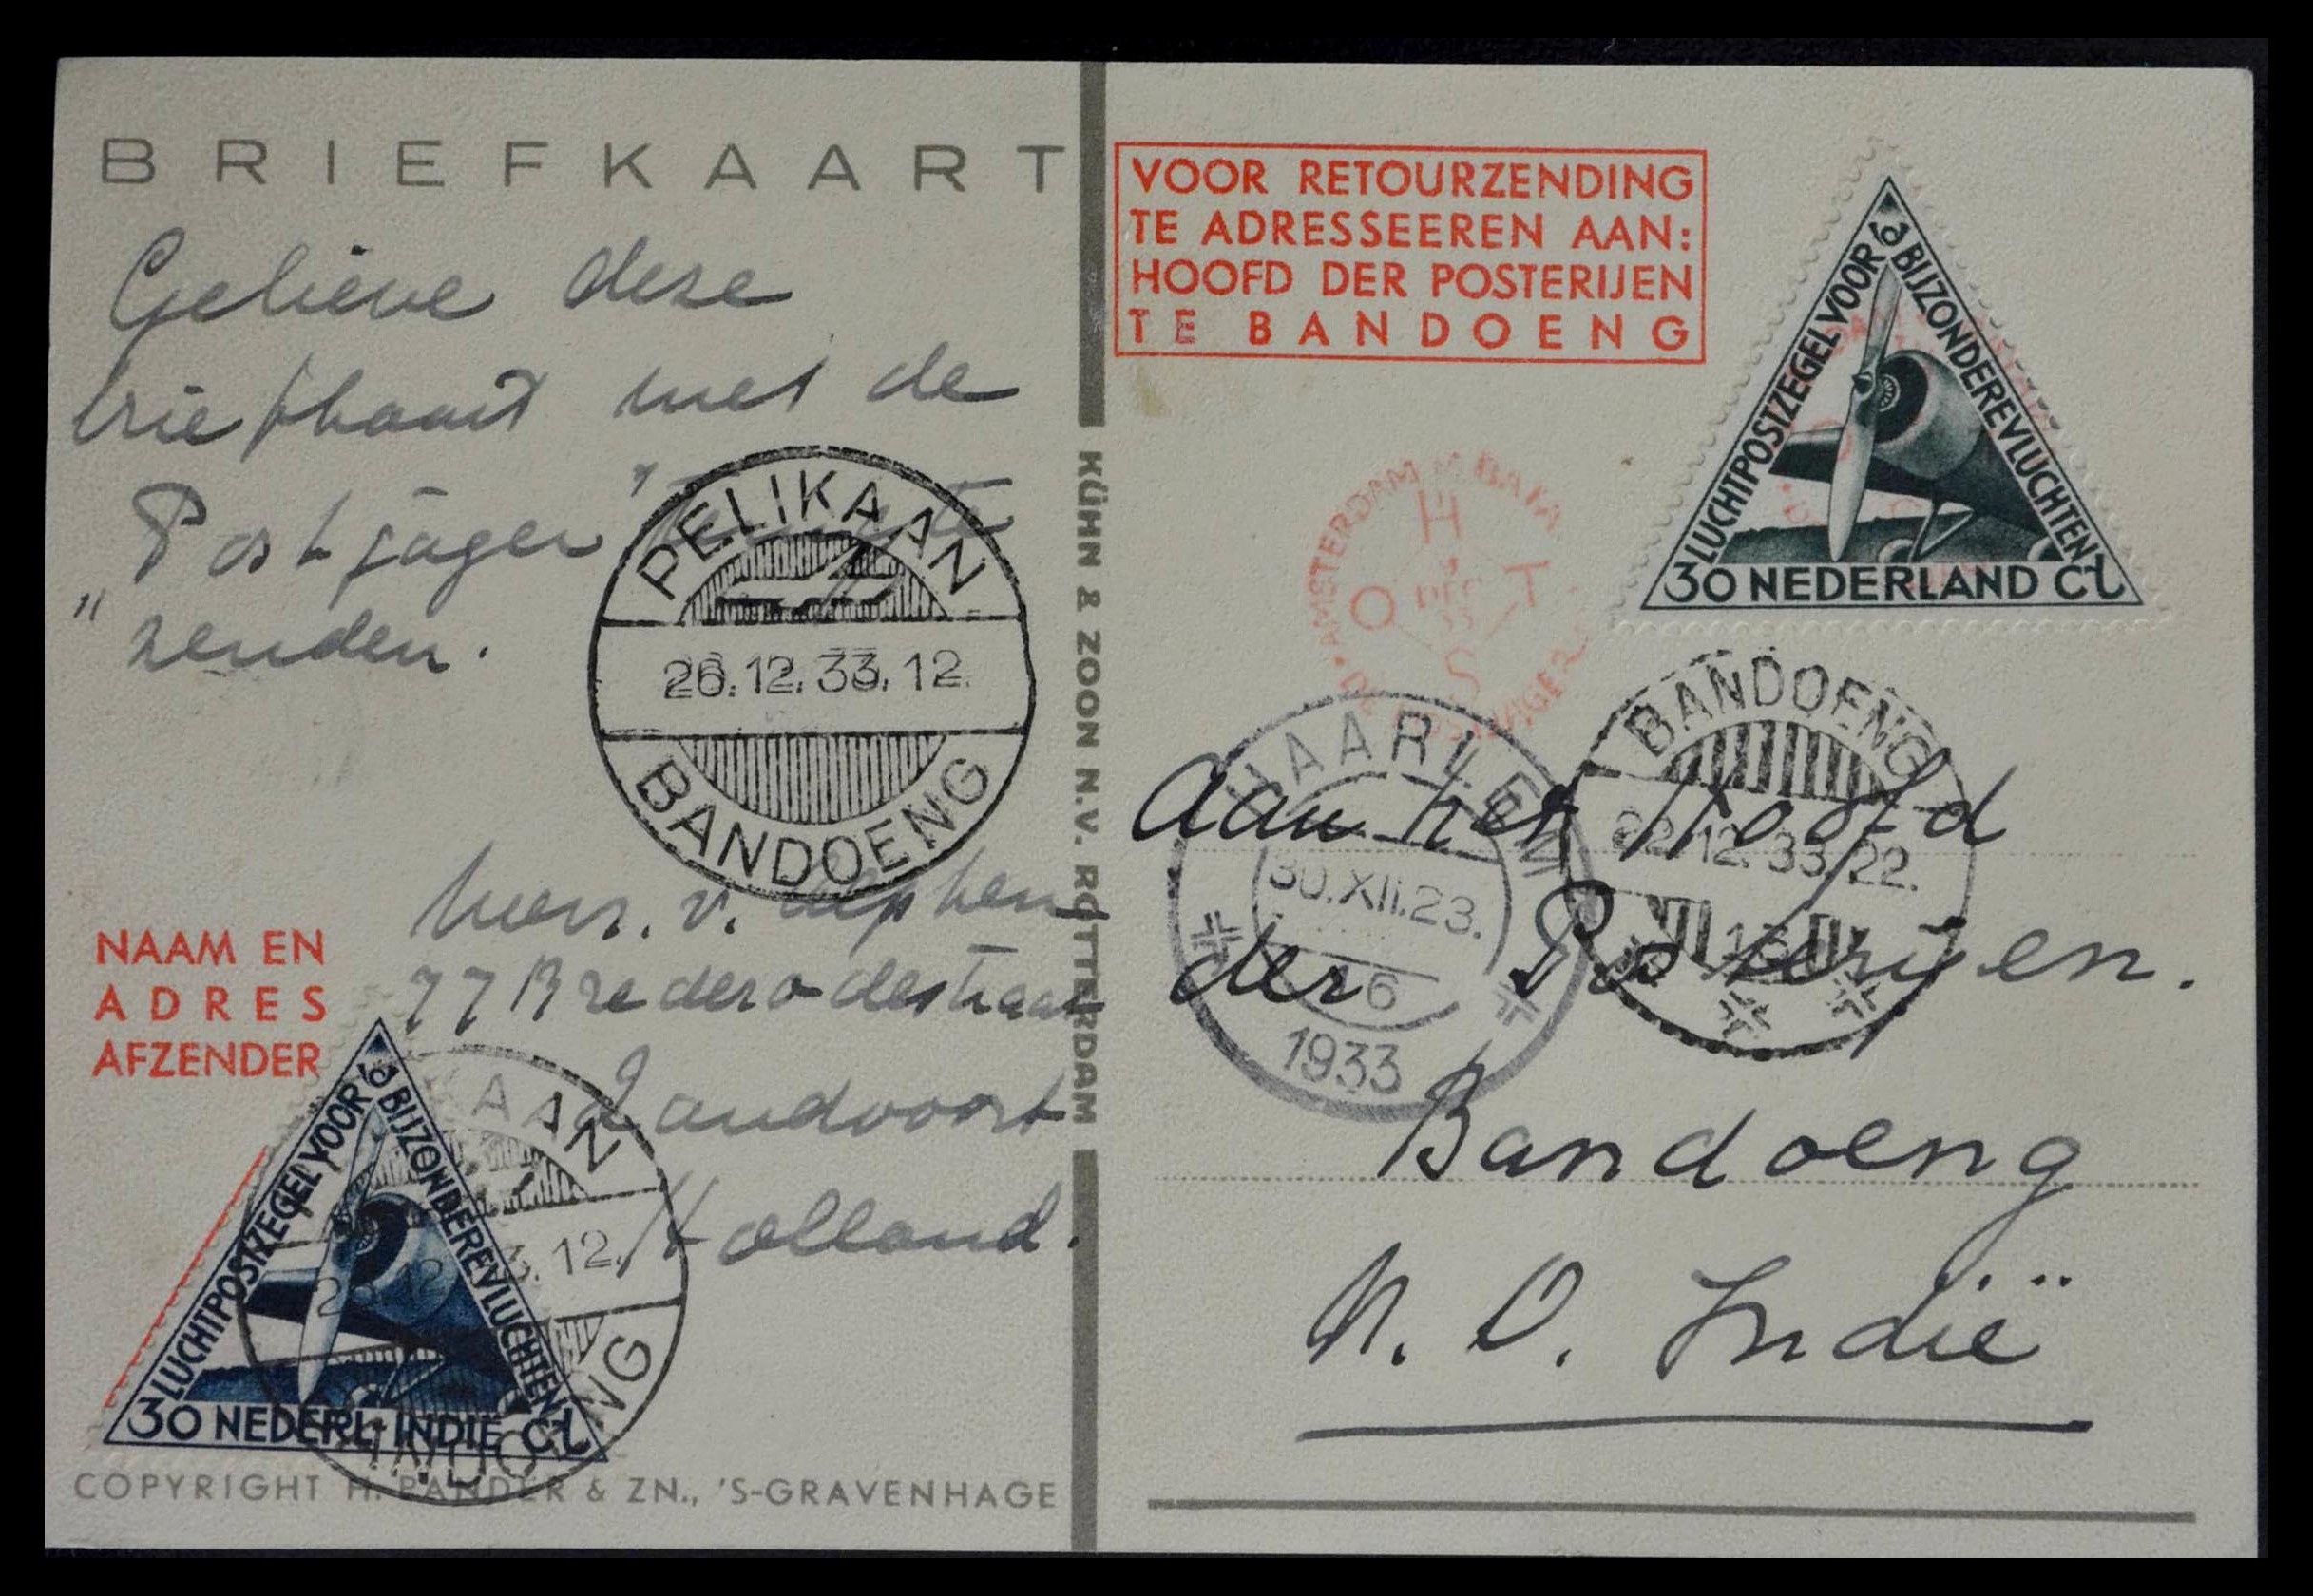 BRIEFKAART
Gelieve deze
briefkaart met de
"Postjager" terug te
" zenden.
PELIKAAN
26.12.33.12.
BANDOENG
NAAM EN
ADRES
AFZENDER
v. Alphen
77 Brederodestraat
Zandvoort
Holland.
KAAN
3.12.
NG
LUCHTPOSTZEGEL VOOR BIJZONDERE VLUCHTEN
30 NEDERL-INDIE Ct
COPYRIGHT H. PANDER & ZN., 'S-GRAVENHAGE
KÜHN & ZOON N.V. ROTTERDAM
VOOR RETOURZENDING
TE ADRESSEEREN AAN:
HOOFD DER POSTERIJEN
TE BANDOENG
LUCHTPOSTZEGEL VOOR BIJZONDERE VLUCHTEN
30 NEDERLAND Ct
AMSTERDAM
H
O DEC T
33
S
DE POSTJAGER
HAARLEM
30.XII.23.
16
1933
BANDOENG
22.12.33.22.
Aan het Hoofd
der Posterijen.
Bandoeng
N. O. Indië